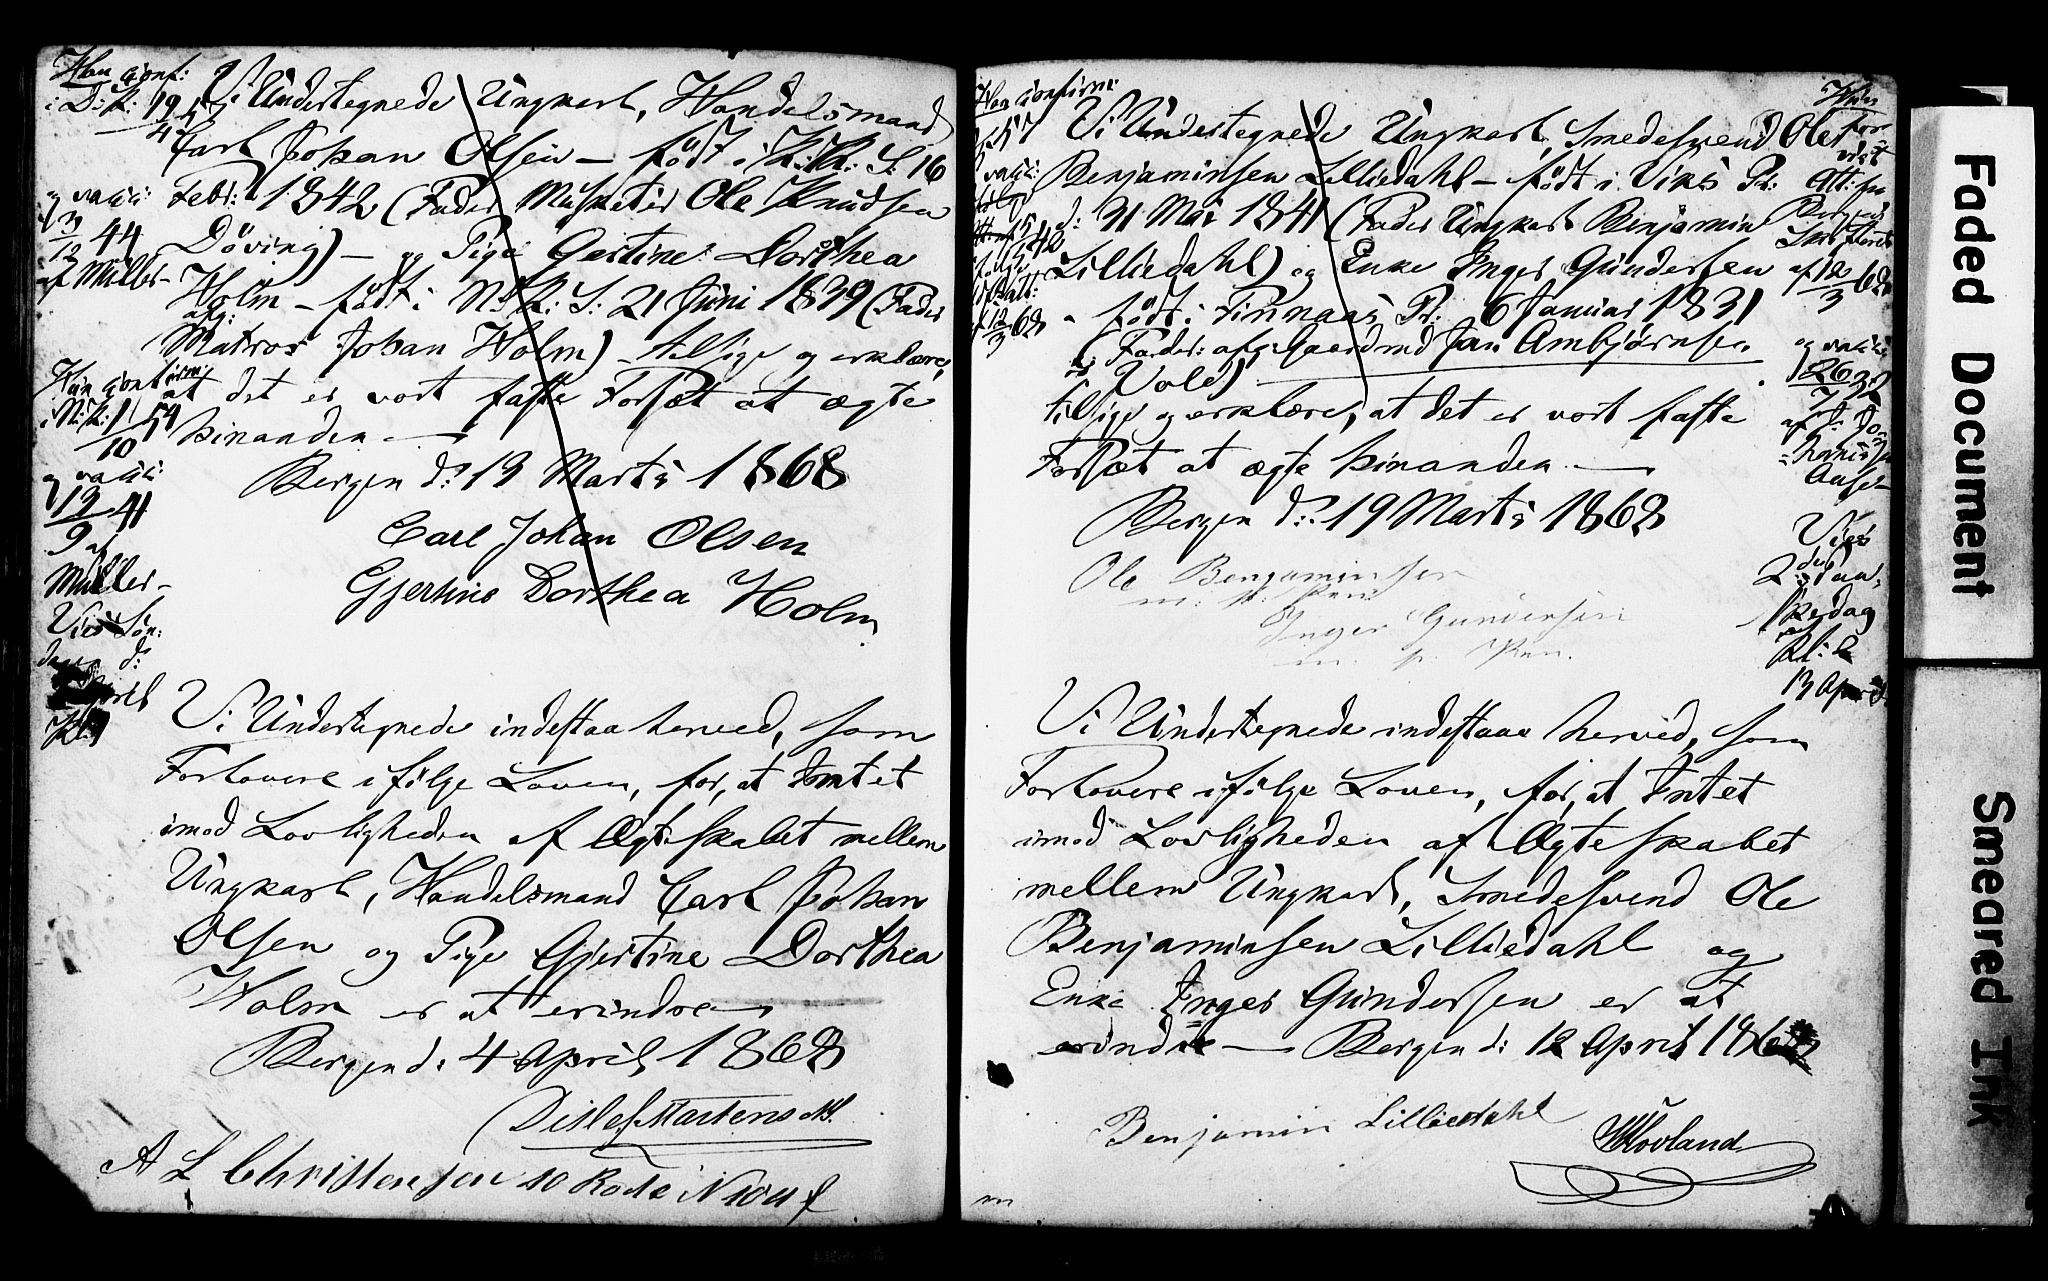 Han conf:
i D: K: 19/4 57
og vacci:
3/12 44
af Müller
Vi Undertegnede Ungkarl, Handelsmand
Carl Johan Olsen – född i K: K: S: 16
Febr: 1842 (Fader Musketer Ole Knudsen
Döving) – og Pige Gertine Dorthea
Holm – född i N: K: S: 21 Juni 1839 (Fader
afg:
Matros Johan Holm) – tillige og erklære,
at det er vort faste Forsæt at ægte
hinanden —
Bergen d: 19 Marts 1868
Carl Johan Olsen
Gjertine Dorthea Holm
Hun confirm:
i N: K: 1/10 54
og vacci:
19/9 41
af
Müller –
Vies Søn:
dagen d:
April
Vi Undertegnede indestaa herved, som
Forlovere ifölge Loven, for, at Intet
imod Lovligheden af Ægteskabet mellem
Ungkarl, Handelsmand Carl Johan
Olsen og Pige Gjertine Dorthea
Holm er at erindre
Bergen d: 4 April 1868
Ditlef Martens
A L Christensen 10 Rode N 10
Han confirm:
57
vacci:
12/3 68
Vi Undertegnede Ungkarl, Smedesvend Ole
Benjaminsen Lilliedahl – född i Viks Pr:
d: 31 Mai 1841 (Fader Ungkarl Benjamin
Lilliedahl) og Enke Inger Gundersen
– född i Finnaas Pr: 6 Januar 1831
(Fader: afg: Gaardmd Jan Ambjørnsen
Vole)
tillige og erklære, at det er vort faste
Forsæt at ægte hinanden —
Bergen d: 19 Marts 1868
Ole Benjaminsen
m: p: Pen
Inger Gundersen
m. p. Pen.
Hun
Att: fra
Bergens
af 12/3 68
og vacci:
26/7 32
af
Vies
2den Paa:
skedag
Kl: 6
13 April
Vi Undertegnede indestaae herved, som
Forlovere ifölge Loven, for, at Intet
imod Lovligheden af Ægteskabet
mellem Ungkarl, Smedesvend Ole
Benjaminsen Lilliedahl og
Enke Inger Gundersen er at
erindre — Bergen d: 12 April 1868
Benjamin Lilliedahl
Hovland
Faded Document
Smeared Ink